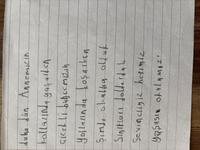 daha dün Annemizin
kollarında yaşarken
çiçekli bahçemizin
yollarında koşarken
şimdi okullu olduk
sınıfları doldurduk
sevinçliyiz hepimiz
yaşasın okulumuz